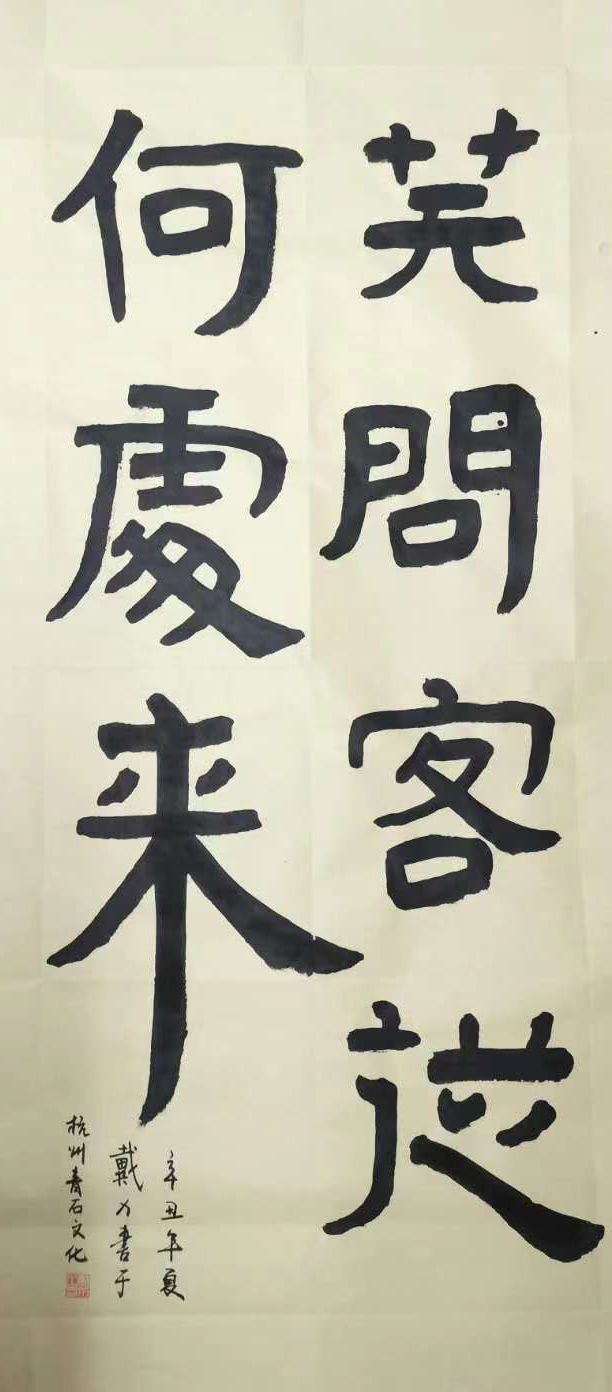 笑問客從
何處来
辛丑年夏
戴書于
杭州青石文化